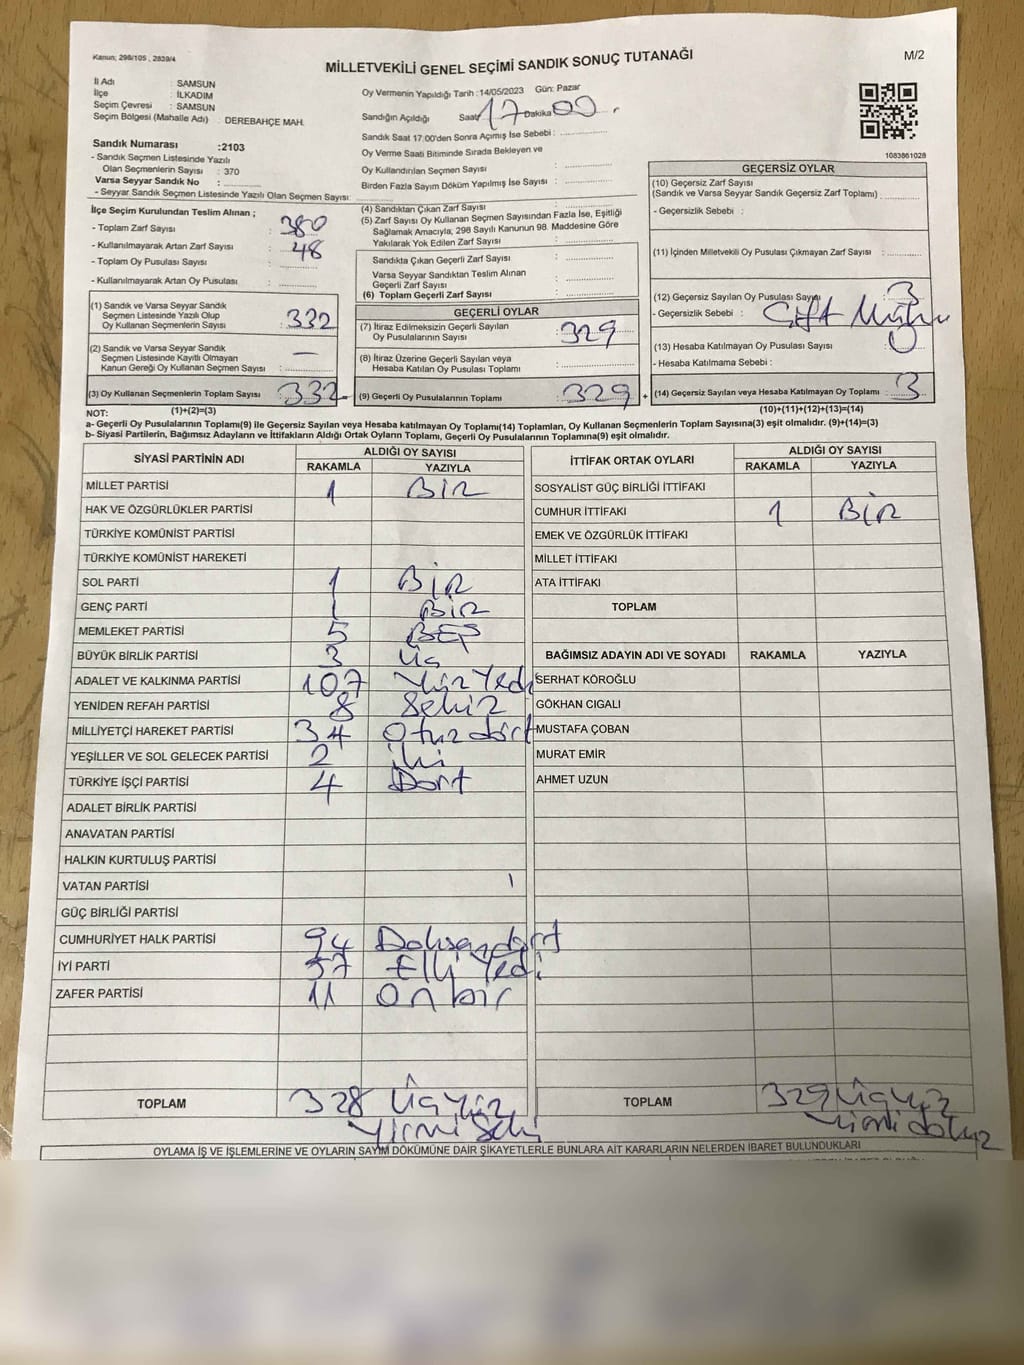 Kanun; 298/105 , 2839/4
MİLLETVEKİLİ GENEL SEÇİMİ SANDIK SONUÇ TUTANAĞI
M/2
İl Adı : SAMSUN
İlçe : İLKADIM
Seçim Çevresi : SAMSUN
Seçim Bölgesi (Mahalle Adı) : DEREBAHÇE MAH.
Sandık Numarası :2103
- Sandık Seçmen Listesinde Yazılı
Olan Seçmenlerin Sayısı : 370
Varsa Seyyar Sandık No :
- Seyyar Sandık Seçmen Listesinde Yazılı Olan Seçmen Sayısı:
Oy Vermenin Yapıldığı Tarih :14/05/2023 Gün: Pazar
Sandığın Açıldığı Saat 17 Dakika 00
Sandık Saat 17:00'den Sonra Açımış İse Sebebi :
Oy Verme Saati Bitiminde Sırada Bekleyen ve
Oy Kullandırılan Seçmen Sayısı :
Birden Fazla Sayım Döküm Yapılmış İse Sayısı :
1083861028
İlçe Seçim Kurulundan Teslim Alınan ;
- Toplam Zarf Sayısı : 380
- Kullanılmayarak Artan Zarf Sayısı : 48
- Toplam Oy Pusulası Sayısı :
- Kullanılmayarak Artan Oy Pusulası :
(1) Sandık ve Varsa Seyyar Sandık
Seçmen Listesinde Yazılı Olup
Oy Kullanan Seçmenlerin Sayısı : 332
(2) Sandık ve Varsa Seyyar Sandık
Seçmen Listesinde Kayıtlı Olmayan
Kanun Gereği Oy Kullanan Seçmen Sayısı : —
(3) Oy Kullanan Seçmenlerin Toplam Sayısı : 332
(1)+(2)=(3)
(4) Sandıktan Çıkan Zarf Sayısı :
(5) Zarf Sayısı Oy Kullanan Seçmen Sayısından Fazla İse, Eşitliği
Sağlamak Amacıyla, 298 Sayılı Kanunun 98. Maddesine Göre
Yakılarak Yok Edilen Zarf Sayısı :
Sandıkta Çıkan Geçerli Zarf Sayısı :
Varsa Seyyar Sandıktan Teslim Alınan
Geçerli Zarf Sayısı :
(6) Toplam Geçerli Zarf Sayısı :
GEÇERLİ OYLAR
(7) İtiraz Edilmeksizin Geçerli Sayılan
Oy Pusulalarının Sayısı : 329
(8) İtiraz Üzerine Geçerli Sayılan veya
Hesaba Katılan Oy Pusulaları Toplamı :
(9) Geçerli Oy Pusulalarının Toplamı : 329 +
GEÇERSİZ OYLAR
(10) Geçersiz Zarf Sayısı
(Sandık ve Varsa Seyyar Sandık Geçersiz Zarf Toplamı)
- Geçersizlik Sebebi :
(11) İçinden Milletvekili Oy Pusulası Çıkmayan Zarf Sayısı :
(12) Geçersiz Sayılan Oy Pusulası Sayısı : 3
- Geçersizlik Sebebi : Çift Mühür
(13) Hesaba Katılmayan Oy Pusulası Sayısı : 0
- Hesaba Katılmama Sebebi :
(14) Geçersiz Sayılan veya Hesaba Katılmayan Oy Toplamı : 3
(10)+(11)+(12)+(13)=(14)
NOT:
a- Geçerli Oy Pusulalarının Toplamı(9) ile Geçersiz Sayılan veya Hesaba katılmayan Oy Toplamı(14) Toplamları, Oy Kullanan Seçmenlerin Toplam Sayısına(3) eşit olmalıdır. (9)+(14)=(3)
b- Siyasi Partilerin, Bağımsız Adayların ve İttifakların Aldığı Ortak Oyların Toplamı, Geçerli Oy Pusulalarının Toplamına(9) eşit olmalıdır.
SİYASİ PARTİNİN ADI ALDIĞI OY SAYISI
RAKAMLA YAZIYLA
MİLLET PARTİSİ 1 BİR
HAK VE ÖZGÜRLÜKLER PARTİSİ
TÜRKİYE KOMÜNİST PARTİSİ
TÜRKİYE KOMÜNİST HAREKETİ
SOL PARTİ 1 BİR
GENÇ PARTİ 1 BİR
MEMLEKET PARTİSİ 5 BEŞ
BÜYÜK BİRLİK PARTİSİ 3 Üç
ADALET VE KALKINMA PARTİSİ 107 Yüz Yedi
YENİDEN REFAH PARTİSİ 8 Sekiz
MİLLİYETÇİ HAREKET PARTİSİ 34 Otuz dört
YEŞİLLER VE SOL GELECEK PARTİSİ 2 iki
TÜRKİYE İŞÇİ PARTİSİ 4 Dört
ADALET BİRLİK PARTİSİ
ANAVATAN PARTİSİ
HALKIN KURTULUŞ PARTİSİ
VATAN PARTİSİ
GÜÇ BİRLİĞİ PARTİSİ
CUMHURİYET HALK PARTİSİ 94 Doksandört
İYİ PARTİ 57 Elli Yedi
ZAFER PARTİSİ 11 On bir
TOPLAM 328 Üçyüz
Yirmi Seki
İTTİFAK ORTAK OYLARI ALDIĞI OY SAYISI
RAKAMLA YAZIYLA
SOSYALIST GÜÇ BİRLİĞİ İTTİFAKI
CUMHUR İTTİFAKI 1 BİR
EMEK VE ÖZGÜRLÜK İTTİFAKI
MİLLET İTTİFAKI
ATA İTTİFAKI
TOPLAM
BAĞIMSIZ ADAYIN ADI VE SOYADI RAKAMLA YAZIYLA
SERHAT KÖROĞLU
GÖKHAN CIGALI
MUSTAFA ÇOBAN
MURAT EMİR
AHMET UZUN
TOPLAM 329 Üçyüz
Yirmi dokuz
OYLAMA İŞ VE İŞLEMLERİNE VE OYLARIN SAYIM DÖKÜMÜNE DAİR ŞİKAYETLERLE BUNLARA AİT KARARLARIN NELERDEN İBARET BULUNDUKLARI